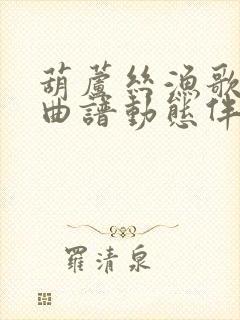 葫蘆絲漁歌
曲譜動態伴
羅清泉